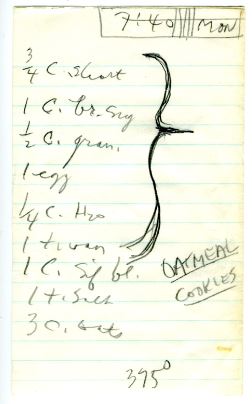 7:40 MON
3/4 C. Short
1 C. br. sug
1/2 C. gran.
1 egg
1/4 C. H2O
1 t. van
1 C. Sif fl.
1 t. Salt
3 C. Oats
OATMEAL
COOKIES
395°